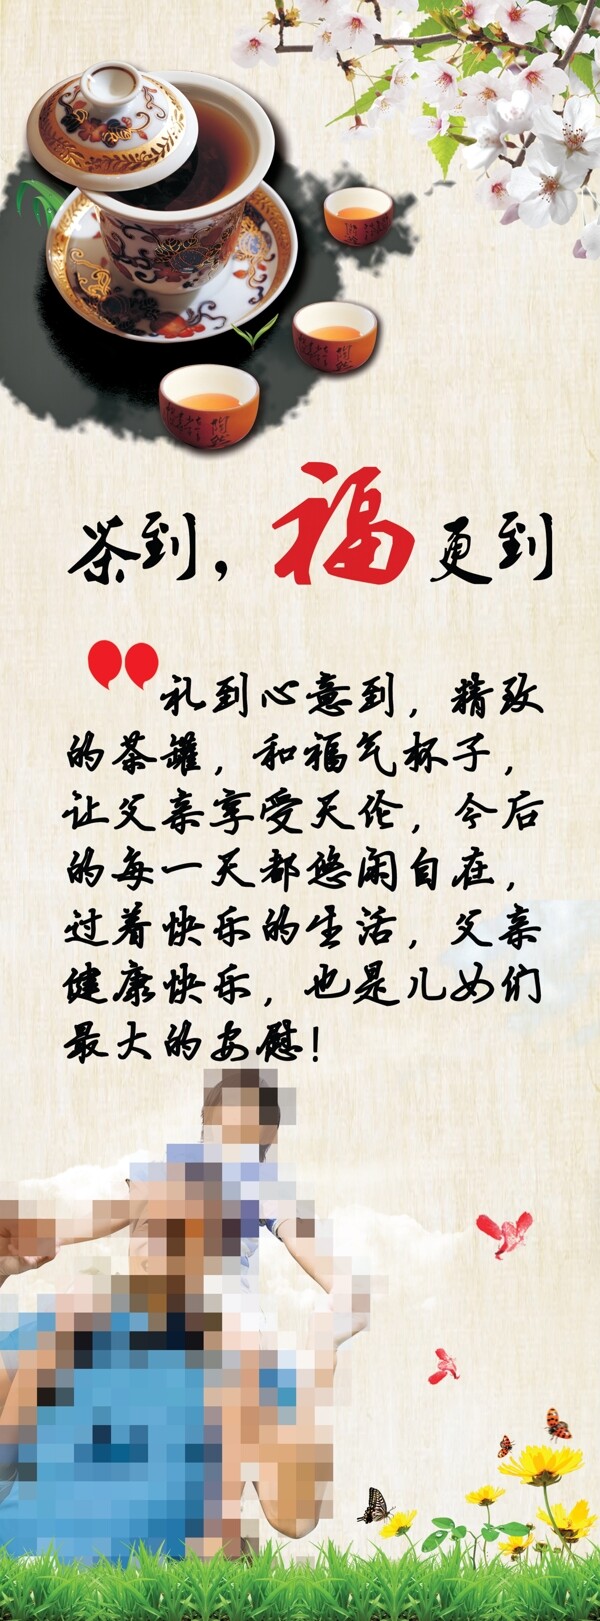 茶到，福更到
礼到心意到，精致
的茶罐，和福气杯子，
让父亲享受天伦，今后
的每一天都悠闲自在，
过着快乐的生活，父亲
健康快乐，也是儿女们
最大的安慰！